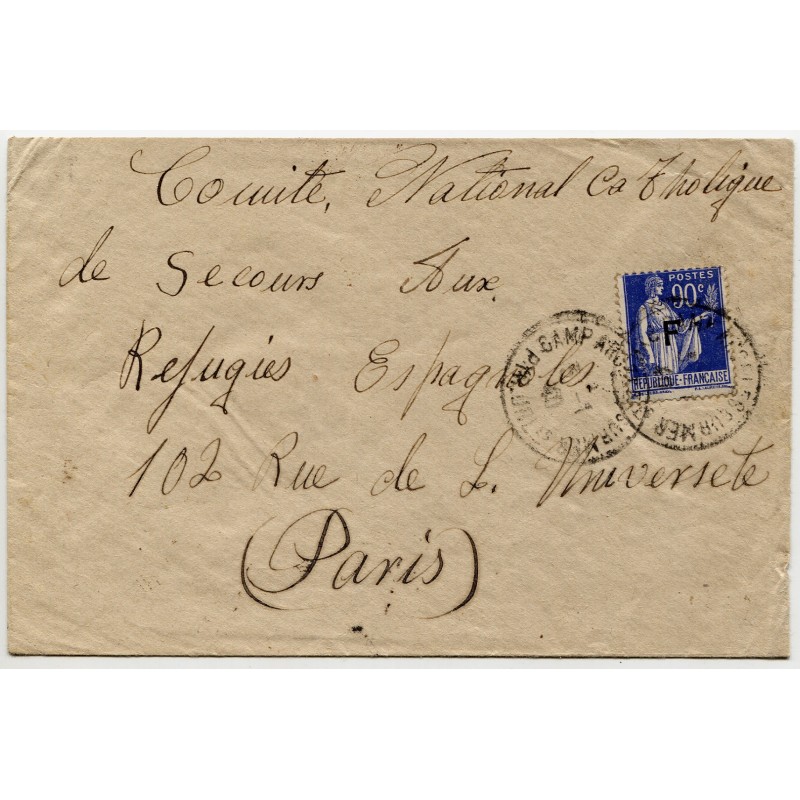 Comite, National Catholique
de Secours Aux
Refugies Espagnoles
102 Rue de L. Universete
(Paris)
POSTES
90c
F
REPUBLIQUE-FRANÇAISE
CAMP
SUR MER